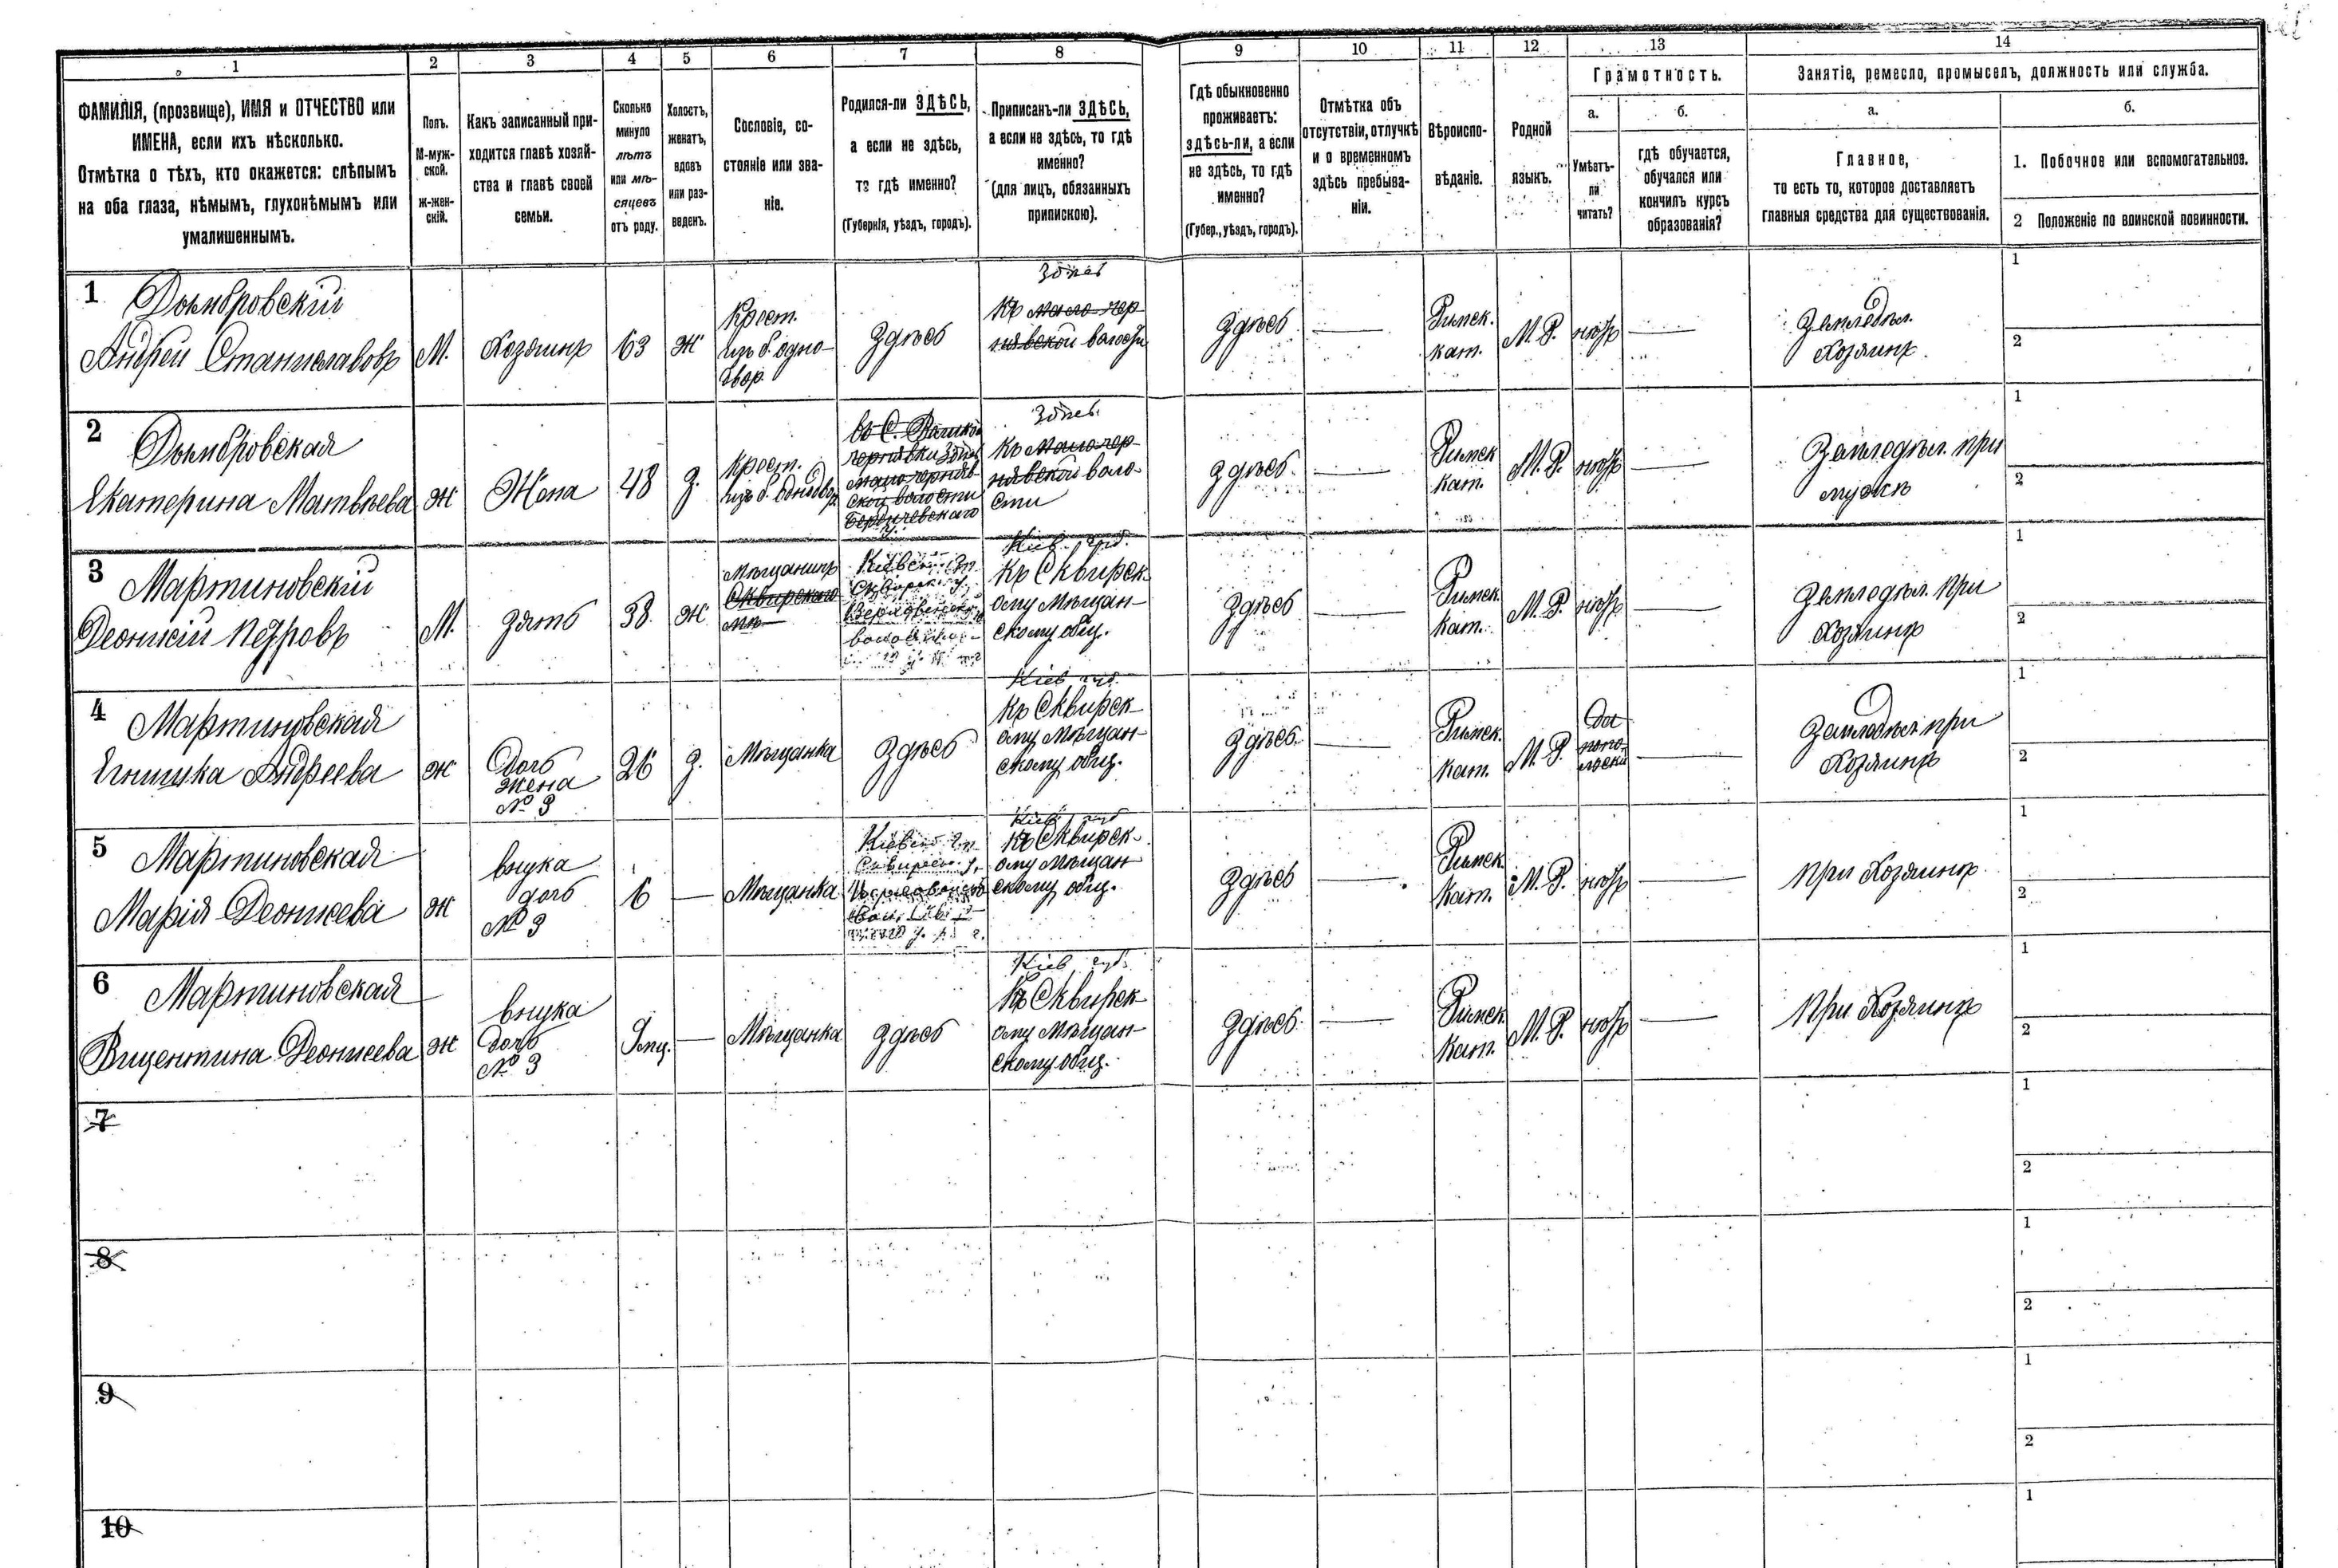 1
2
3
4
5
6
7
8
9
10
11
12
13
14
ФАМИЛІЯ, (прозвище), ИМЯ и ОТЧЕСТВО или
ИМЕНА, если ихъ нѣсколько.
Отмѣтка о тѣхъ, кто окажется: слѣпымъ
на оба глаза, нѣмымъ, глухонѣмымъ или
умалишеннымъ.
Полъ.
М-муж-
ской.
ж-жен-
скій.
Какъ записанный при-
ходится главѣ хозяй-
ства и главѣ своей
семьи.
Сколько
минуло
лѣтъ
или мѣ-
сяцевъ
отъ роду.
Холостъ,
женатъ,
вдовъ
или раз-
веденъ.
Сословіе, со-
стояніе или зва-
ніе.
Родился-ли ЗДѢСЬ,
а если не здѣсь,
то гдѣ именно?
(Губернія, уѣздъ, городъ).
Приписанъ-ли ЗДѢСЬ,
а если не здѣсь, то гдѣ
именно?
(для лицъ, обязанныхъ
припискою).
Гдѣ обыкновенно
проживаетъ:
здѣсь-ли, а если
не здѣсь, то гдѣ
именно?
(Губер., уѣздъ, городъ).
Отмѣтка объ
отсутствіи, отлучкѣ
и о временномъ
здѣсь пребыва-
ніи.
Вѣроиспо-
вѣданіе.
Родной
языкъ.
Грамотность.
а.
Умѣетъ-
ли
читать?
б.
гдѣ обучается,
обучался или
кончилъ курсъ
образованія?
Занятіе, ремесло, промыселъ, должность или служба.
а.
Главное,
то есть то, которое доставляетъ
главныя средства для существованія.
б.
1. Побочное или вспомогательное.
2 Положеніе по воинской повинности.
1
Домбровскій
Андрей Станиславовъ
М.
Хозяинъ
63
ж
Крест.
изъ б. одно-
двор.
Здѣсь
Здѣсь
Къ мало-чер
нявской волости
Здѣсь
Римск.
кат.
М. Р.
нѣтъ
Земледѣл.
Хозяинъ.
1
2
2
Домбровская
Екатерина Матвѣева
ж
Жена
48
З.
Крест.
изъ б. однодвор.
Бердичевскаго
Здѣсь.
Къ Мало чер-
нявской воло-
сти
Здѣсь.
Римск
кат.
М. Р.
нѣтъ
Земледѣл. при
мужѣ
1
2
3
Мартиновскій
Деонисій Петровъ
М.
Зять
38.
ж.
Мѣщанинъ
Сквирскаго
Кіев. губ.
Къ Сквирск
ому Мѣщан-
скому общ.
Здѣсь
Римск.
кат.
М. Р.
нѣтъ
Земледѣл. при
Хозяинѣ
1
2
4
Мартиновская
Егнишка Андреева
ж
Дочь
жена
№ 3
26
З.
Мѣщанка
Здѣсь
Кіев губ.
Къ Сквирск
ому Мѣщан-
скому общ.
Здѣсь.
Римск.
кат.
М. Р.
Да
Земледѣл. при
Хозяинѣ
1
2
5
Мартиновская
Марія Деонисева
ж
внука
дочь
№ 3
6
Мѣщанка
Кіев. губ
Къ Сквирск-
ому Мѣщан
скому общ.
Здѣсь
Римск.
кат.
М. Р.
нѣтъ
При Хозяинѣ
1
2
6
Мартиновская
Вицентина Деонисева
ж
внука
дочь
№ 3
9 мц.
Мѣщанка
Здѣсь
Кіев. губ.
Къ Сквирск-
ому Мѣщан-
скому общ.
Здѣсь.
Римск.
кат.
М. Р.
нѣтъ
При Хозяинѣ
1
2
7
1
2
8
1
2
9
1
2
10
1